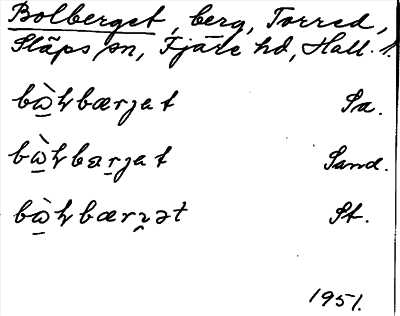 Bolberget, berg, Torred,
Släps sn, Fjäre hd, Hall. l.
bὼɫbærjat Sa.
bὼɫbærjat Sand.
bὼɫbærjət St.
1951.